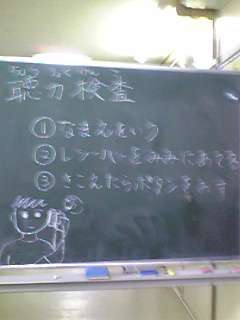 ちょうりょくけんさ
聴力検査
①なまえをいう
②レシーバーをみみにあてる
③きこえたらボタンをおす